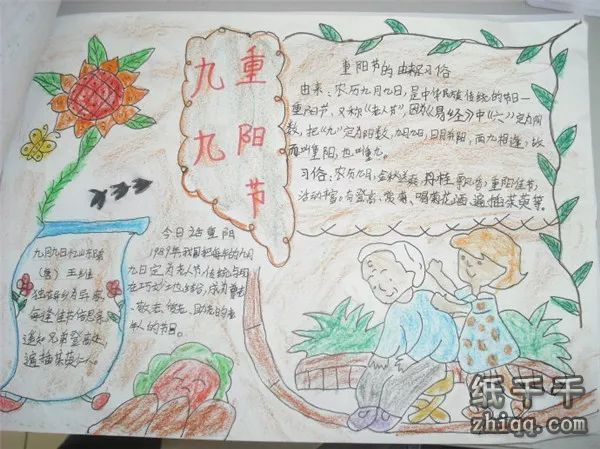 九九
重阳节
重阳节的由来与习俗
由来:农历九月九日,是中华民族传统的节日—
重阳节,又称《老人节》,因为《易经》中《六》定为阴
数,把《九》定为阳数,九月九日,日月并阳,两九相逢,故
而叫重阳,也叫重九。
习俗:农历九月,金秋送爽,丹桂飘香,重阳佳节,
活动丰富,有登高、赏菊、喝菊花酒、遍插茱萸等。
今日话重阳
1989年我国把每年的九月
九日定为老人节,传统与现
代巧妙地结合,成为尊老、
敬老、爱老、助老的老
年人的节日。
九月九日忆山东兄弟
(唐) 王维
独在异乡为异客,
每逢佳节倍思亲。
遥知兄弟登高处,
遍插茱萸少一人。
纸千千
zhiqq.com